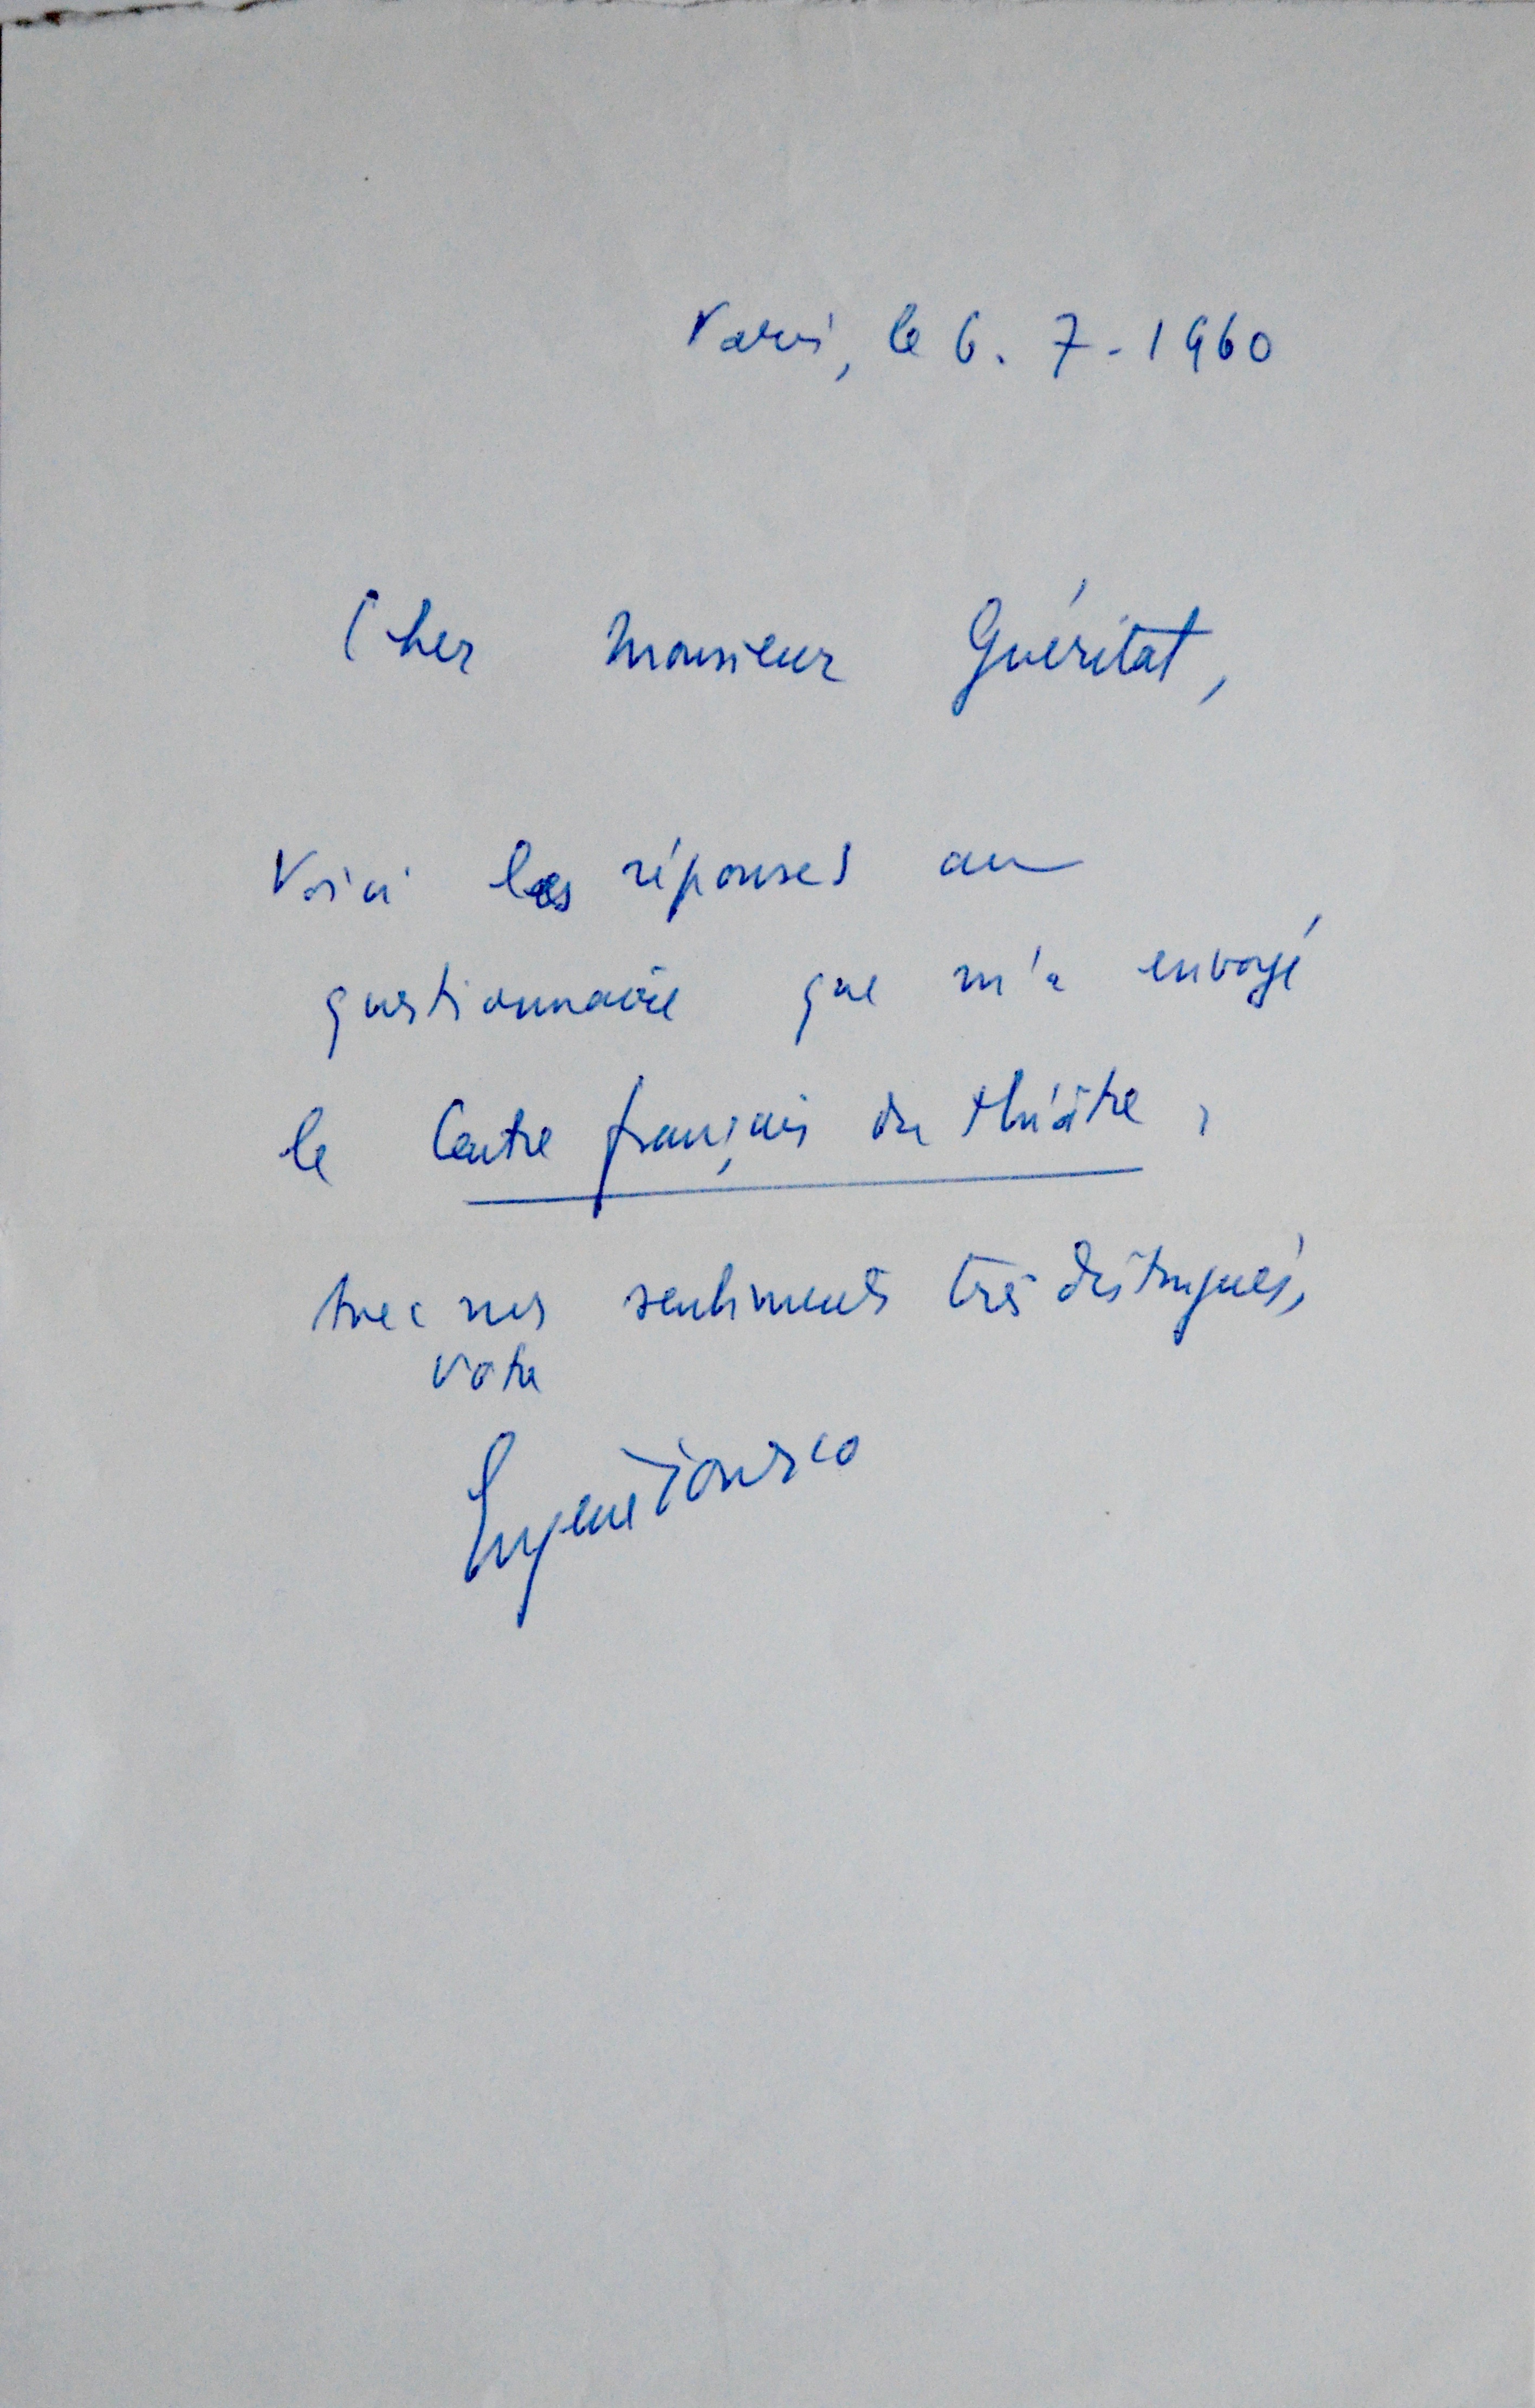 Paris, le 6. 7-1960
Cher Monsieur Guéritat,
Voici les réponses au
questionnaire que m'a envoyé
le Centre français du théâtre,
avec mes sentiments très distingués,
votre
Eugène Ionesco